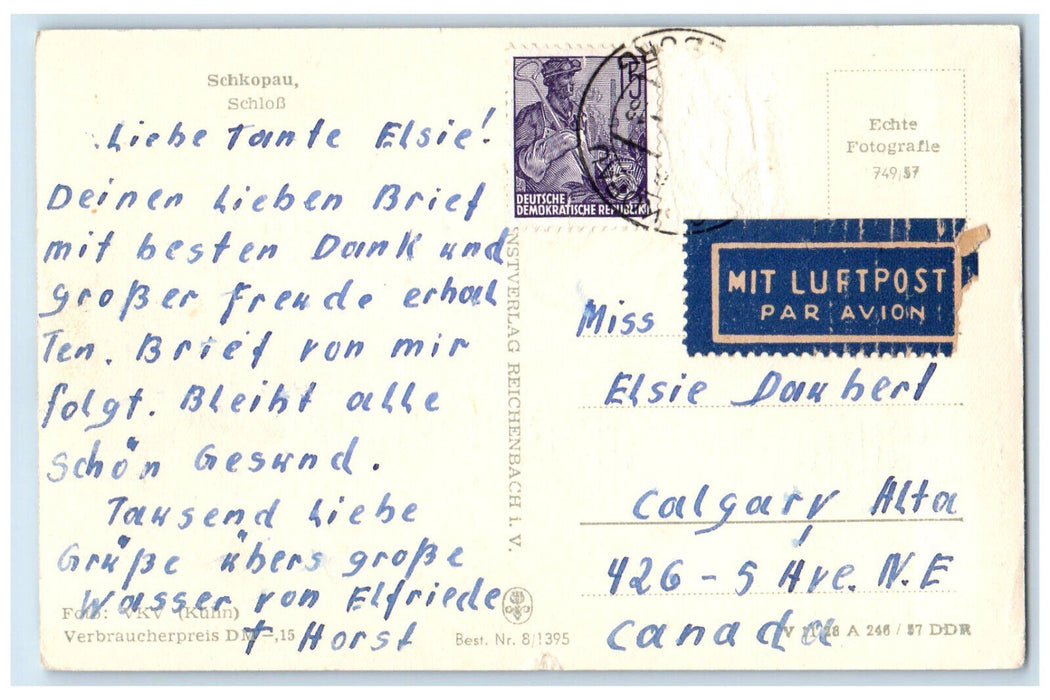 Schkopau,
Schloß
Liebe Tante Elsie!
Deinen Lieben Brief
mit besten Dank und
großer Freude erhal
Ten. Brief von mir
folgt. Bleibt alle
schön Gesund.
Tausend Liebe
Grüße übers große
Wasser von Elfriede
+ Horst
Foto: VKV (Kühn)
Verbraucherpreis DM -,15
Best. Nr. 8/1395
NSTVERLAG REICHENBACH i. V.
15
DEUTSCHE
DEMOKRATISCHE REPUBLIK
Echte
Fotografie
749/57
MIT LUFTPOST
PAR AVION
Miss
Elsie Daubert
Calgary Alta
426 - 5 Ave. N.E
Canada
A 246 / 57 DDR